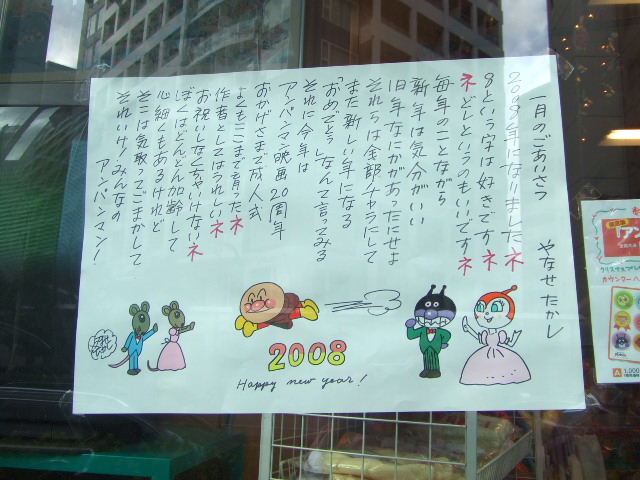 一月のごあいさつ
やなせたかし
2008年になりましたネ
8という字は好きですネ
ネどしというのもいいですネ
毎年のことながら
新年は気分がいい
旧年なにかがあったにせよ
それらは全部チャラにして
また新しい年になる
「おめでとう」なんて言ってみる
それに今年は
アンパンマン映画20周年
おかげさまで成人式
よくもここまで育ったネ
作者としてはうれしいネ
お祝いしなくちゃいけないネ
ぼくはどんどん加齢して
心細くもあるけれど
そこは気取ってごまかして
それいけ!みんなの
アンパンマン!
2008
Happy new year!